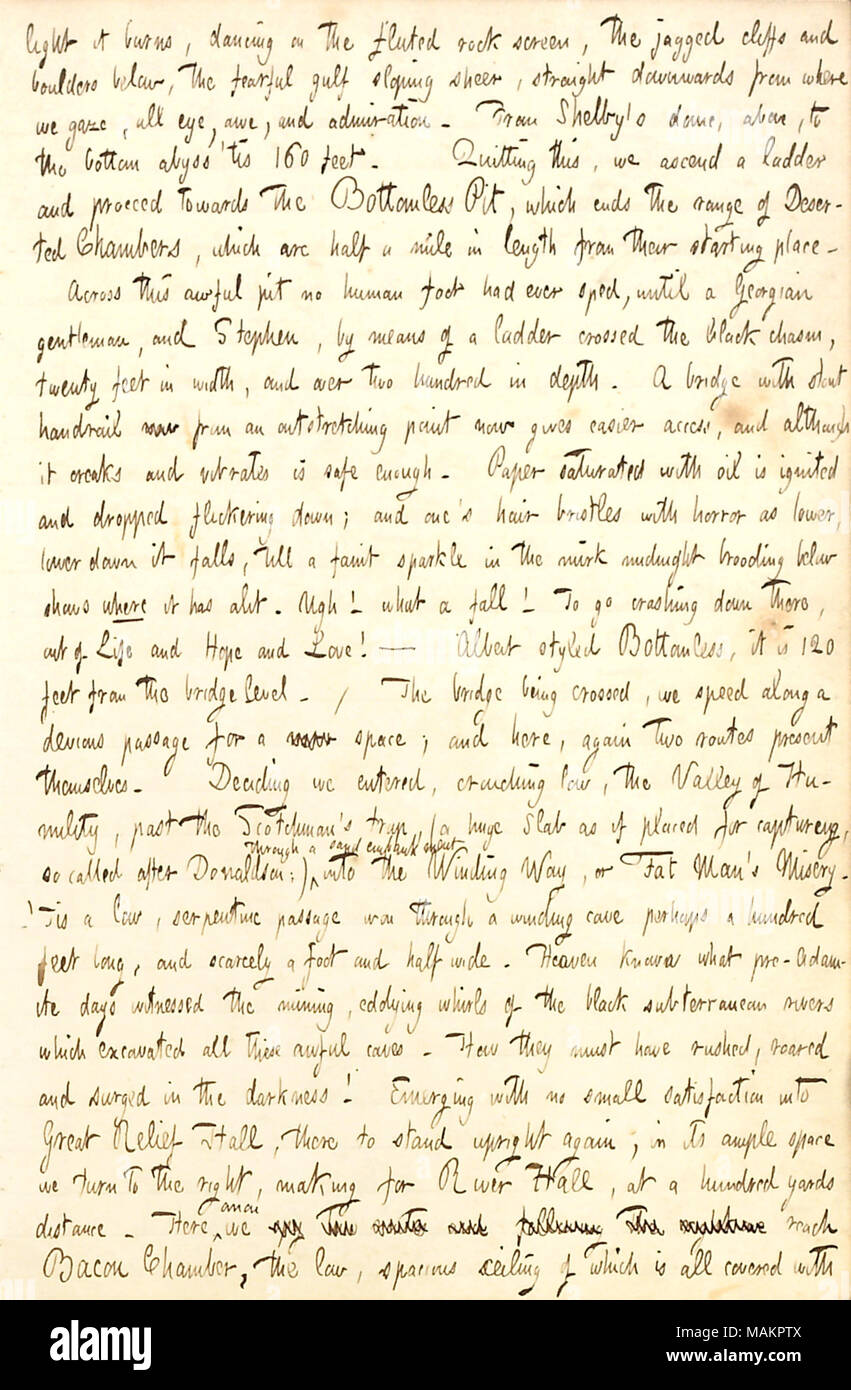 light it burns, dancing on the fluted rock screen, the jagged cliffs and
boulders below, the fearful gulf sloping sheer, straight downwards from where
we gaze, all eye, awe, and admiration. From Shelby's dome, above, to
the bottom abyss 'tis 160 feet. Quitting this, we ascend a ladder
and proceed towards the Bottomless Pit, which ends the range of Deser-
ted Chambers, which are half a mile in length from their starting place.
Across this awful pit no human foot had ever sped, until a Georgian
gentleman, and Stephen, by means of a ladder crossed the black chasm,
twenty feet in width, and over two hundred in depth. A bridge with stout
handrail from an outstretching point now gives easier access, and although
it creaks and vibrates is safe enough. Paper saturated with oil is ignited
and dropped flickering down; and one's hair bristles with horror as lower,
lower down it falls, till a faint sparkle in the mirk midnight brooding below
shows where it has alit. Ugh! what a fall! To go crashing down there,
out of Life and Hope and Love! — Albeit styled Bottomless, it is 120
feet from the bridge level. / The bridge being crossed, we speed along a
devious passage for a space; and here, again two routes present
themselves. Deciding we entered, crouching low, the Valley of Hu-
mility, past the Scotchman's trap, (a huge slab as if placed for capturing,
through a sand embankment
so called after Donaldson;) into the Winding Way, or Fat Man's Misery.
'Tis a low, serpentine passage won through a winding cave perhaps a hundred
feet long, and scarcely a foot and half wide. Heaven knows what pre-Adam-
ite days witnessed the mining, eddying whirls of the black subterranean rivers
which excavated all these awful caves. How they must have rushed, roared
and surged in the darkness! Emerging with no small satisfaction into
Great Relief Hall, there to stand upright again, in its ample space
we turn to the right, making for River Hall, at a hundred yards
anon
distance. Here we reach
Bacon Chamber, the low, spacious ceiling of which is all covered with
alamy
Image ID: MAKPTX
www.alamy.com